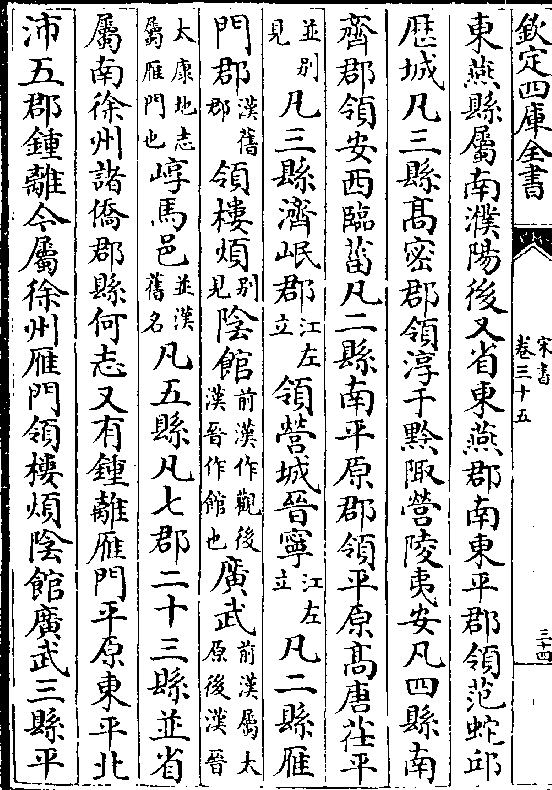 欽定四庫全書
宋書
卷三十五
三十四
東燕縣屬南濮陽後又省東燕郡南東平郡領范蛇邱
歴城凡三縣髙密郡領淳于黔陬營陵夷安凡四縣南
齊郡領安西臨菑凡二縣南平原郡領平原髙唐茌平
並别見凡三縣濟岷郡江左立領營城晉寧江左立凡二縣雁
門郡漢舊郡領樓煩别見陰館前漢作觀後漢晉作館也廣武前漢屬太原後漢晉
太康地志屬雁門也崞馬邑並漢舊名凡五縣凡七郡二十三縣並省
屬南徐州諸僑郡縣何志又有鍾離雁門平原東平北
沛五郡鍾離今屬徐州雁門領樓煩陰館廣武三縣平